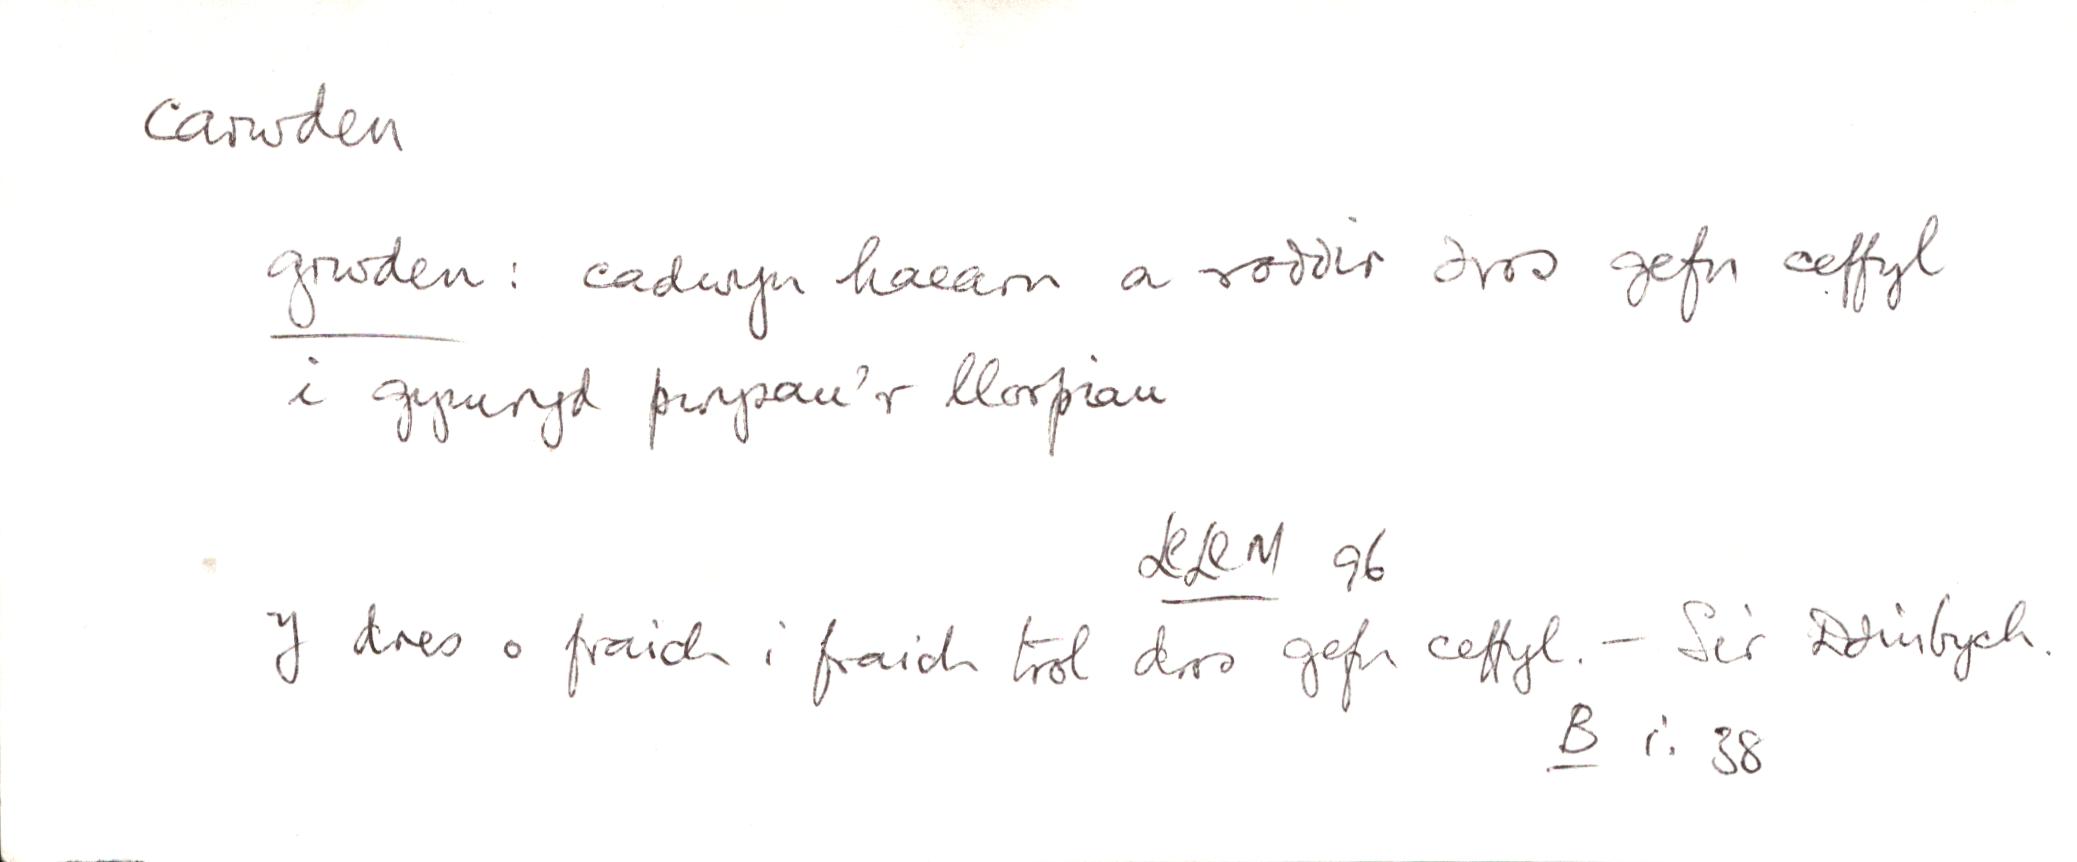 carwden
grwden: cadwyn haearn a roddir dros gefn ceffyl
i gymryd pwysau'r llorpiau
LlLlM 96
Y dres o fraich i fraich trol dros gefn ceffyl. – Sir Ddinbych.
B i. 38